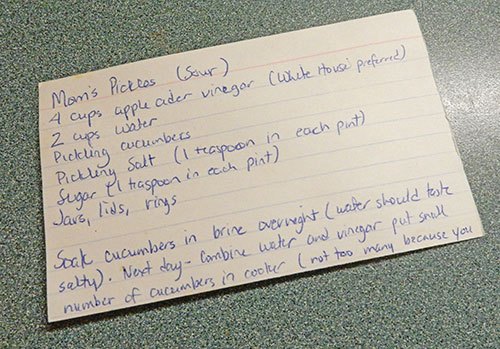 Mom's Pickles (Sour)
4 cups apple cider vinegar (White House preferred)
2 cups water
Pickling cucumbers
Pickling Salt (1 teaspoon in each pint)
Sugar (1 teaspoon in each pint)
Jars, lids, rings
Soak cucumbers in brine overnight (water should taste
salty). Next day - Combine water and vinegar put small
number of cucumbers in cooker (not too many because you